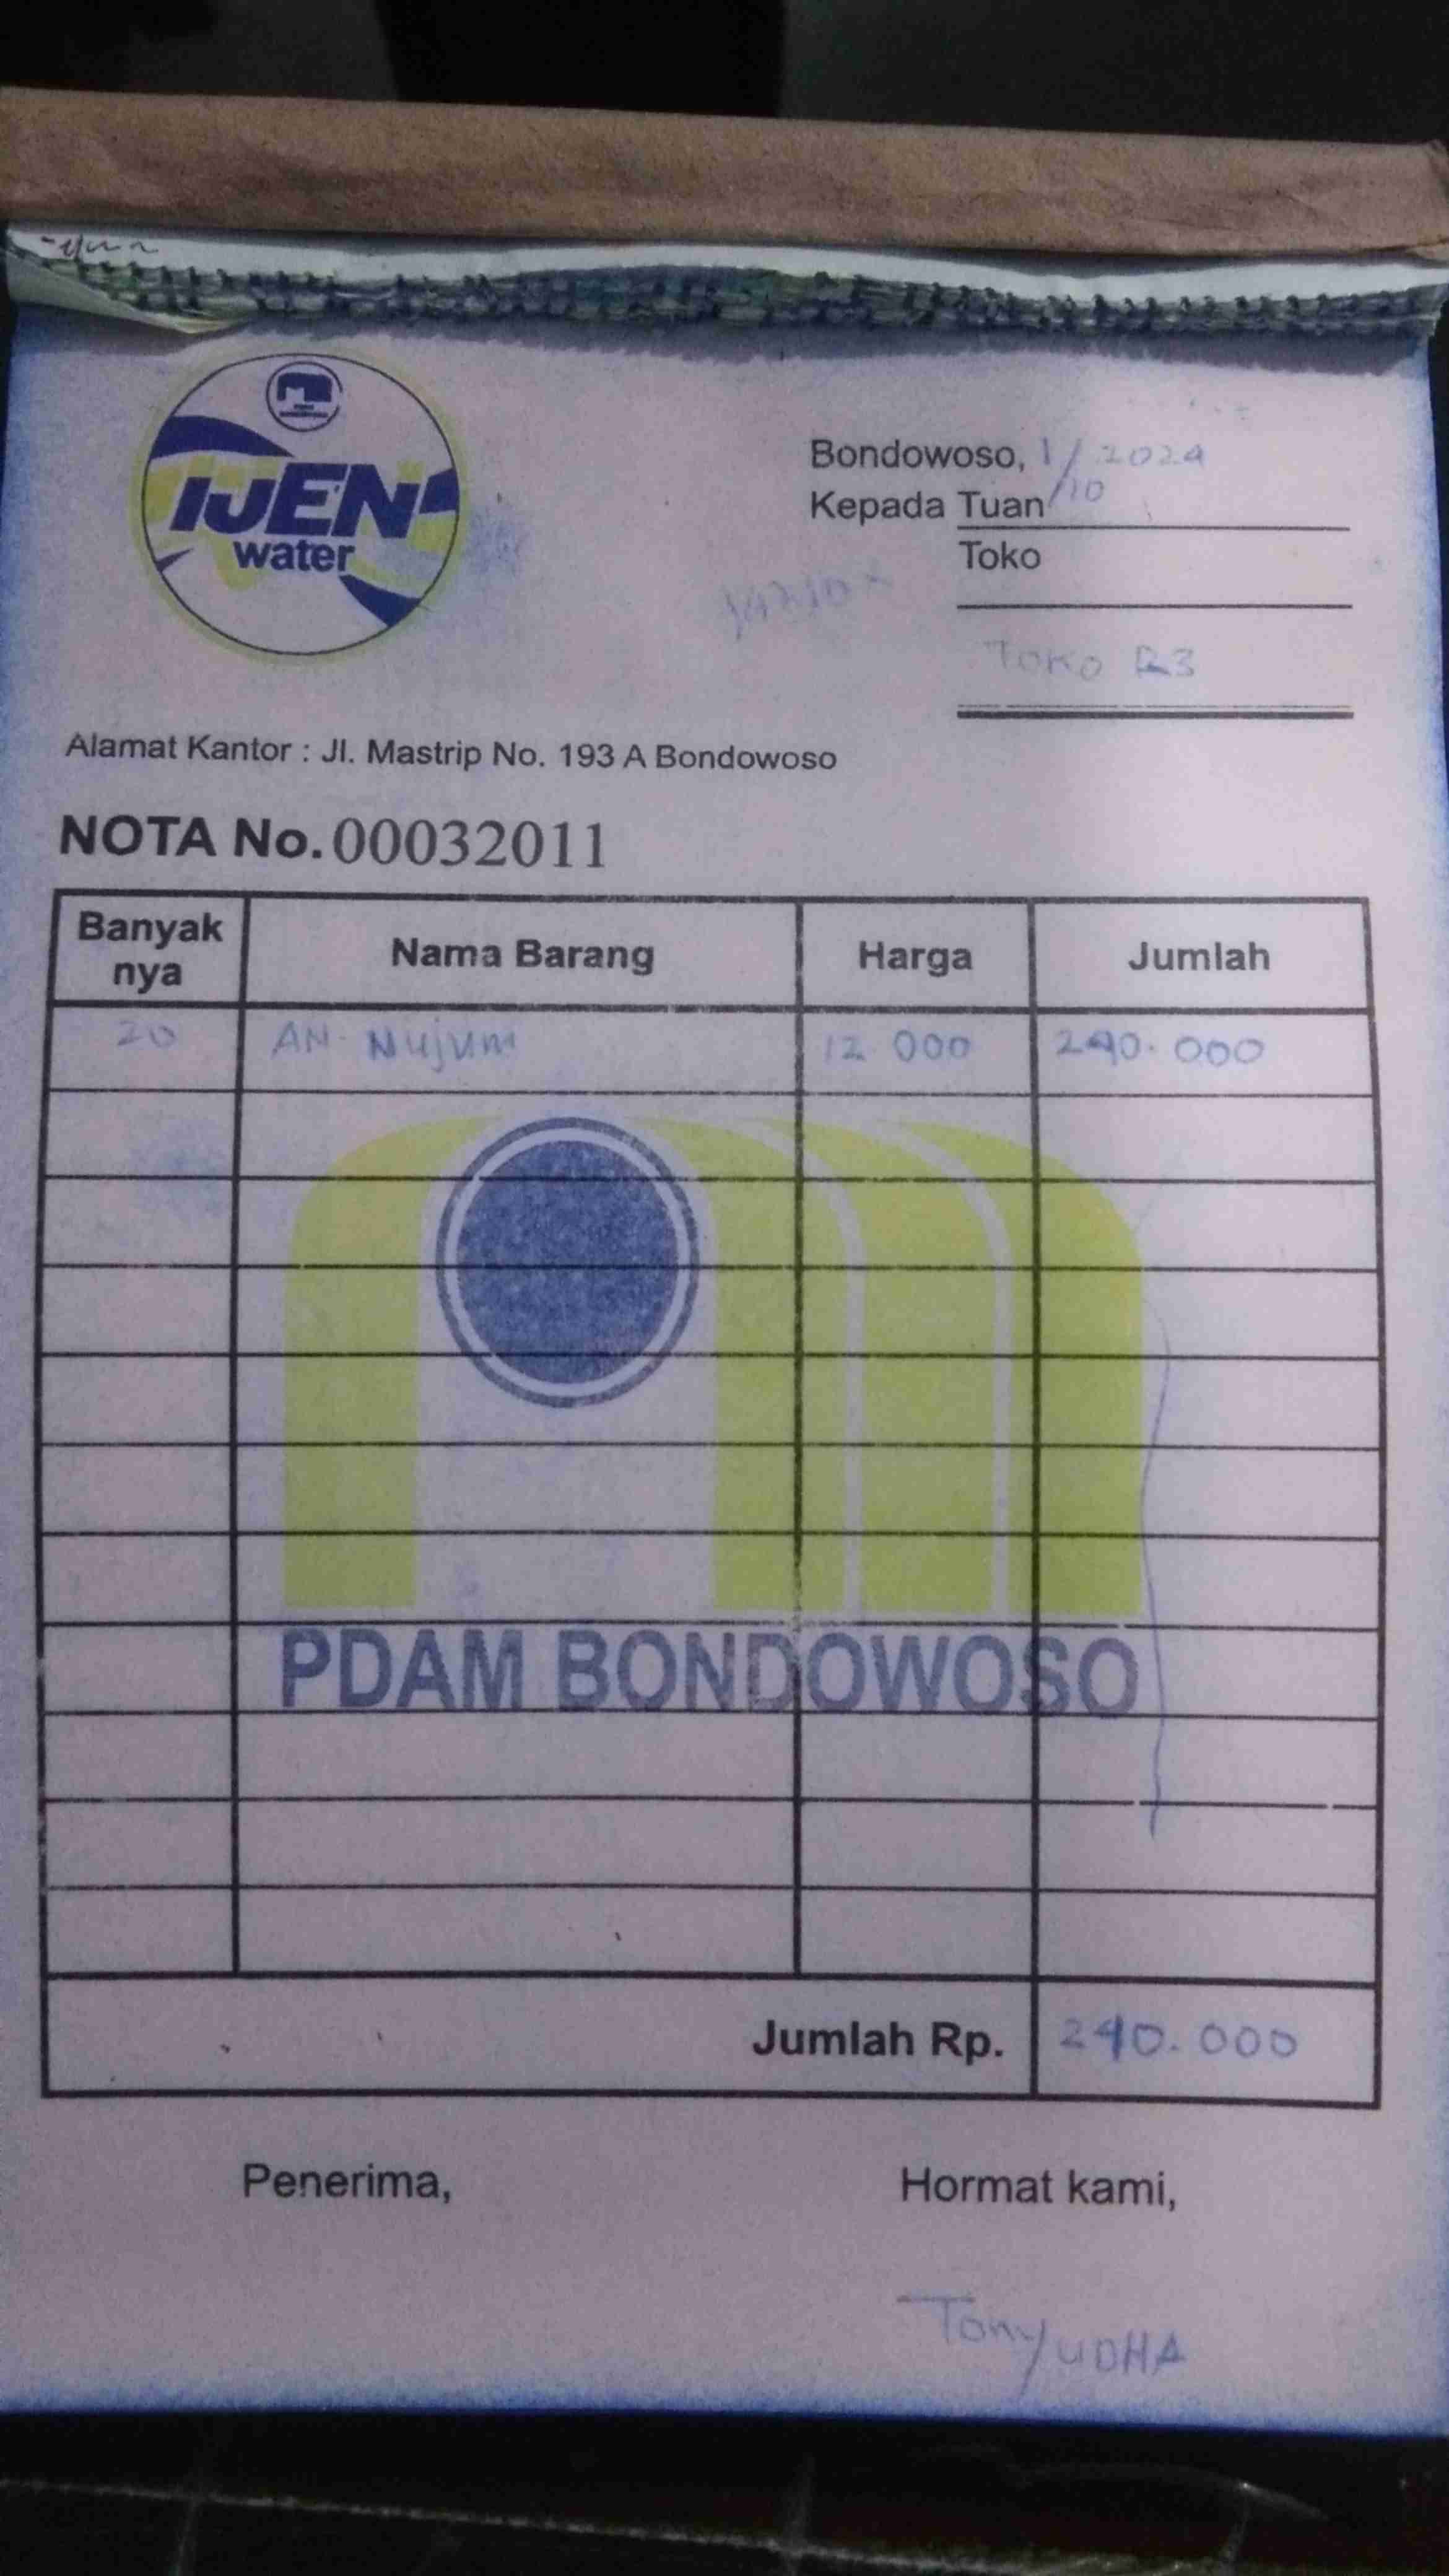 IJEN
water
Bondowoso, 1/10 2024
Kepada Tuan
Toko
Toko R3
Alamat Kantor : Jl. Mastrip No. 193 A Bondowoso
NOTA No. 00032011
Banyak nya Nama Barang Harga Jumlah
20 AN-Nujum 12 000 240.000
PDAM BONDOWOSO
Jumlah Rp. 240.000
Penerima, Hormat kami,
Tony UDHA